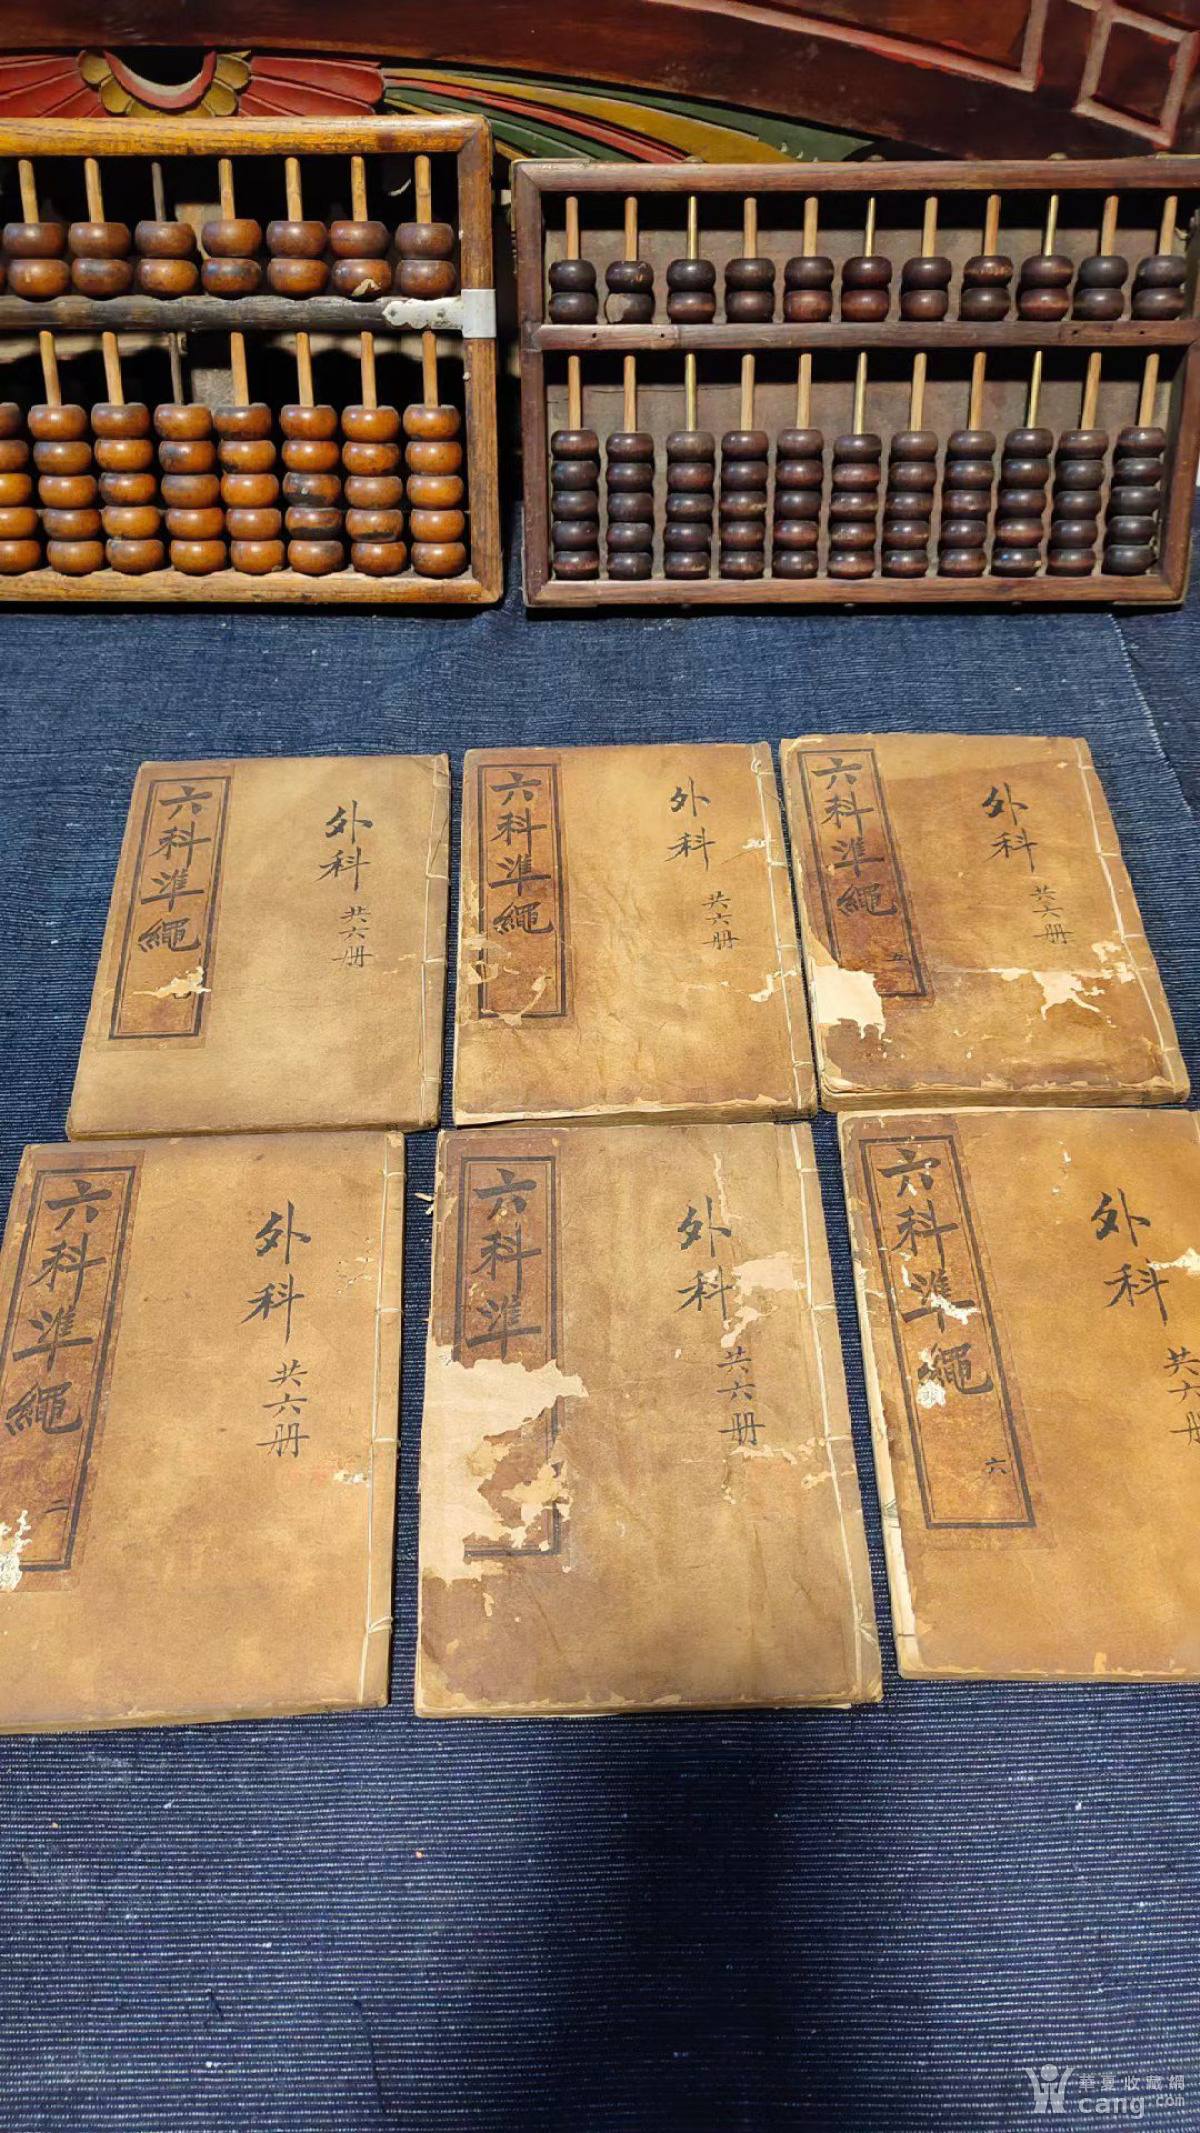 六科準繩
四
外科
共六册
六科準繩
外科
共六册
六科準繩
五
外科
共六册
六科準繩
二
外科
共六册
六科準
外科
共六册
六科準繩
六
外科
共六册
華夏收藏網
cang.com